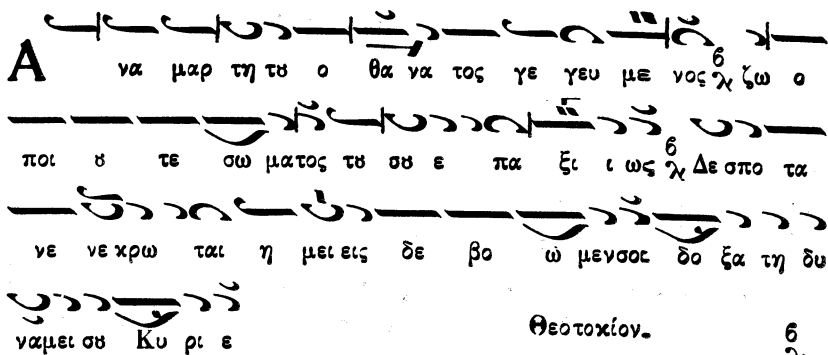 Α να μαρ τη τȣ ο θα να τος γε γευ με νος ζω ο
ποι ȣ τε σω ματος τȣ σȣ ε πα ξι ι ως Δε σπο τα
νε νε κρω ται η μει εις δε βο ω μενσοι δο ξα τη δυ
ναμει σȣ Κυ ρι ε
Θεοτοκίον.